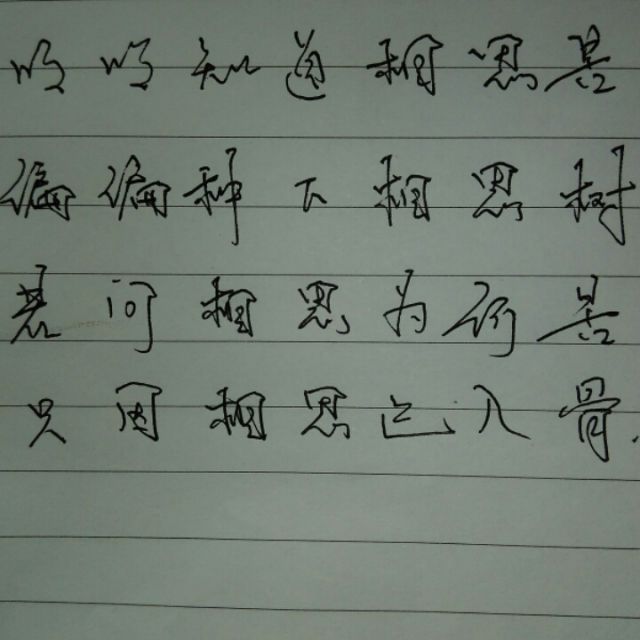 明明知道相思苦
偏偏种下相思树
若问相思为何苦
只因相思已入骨.